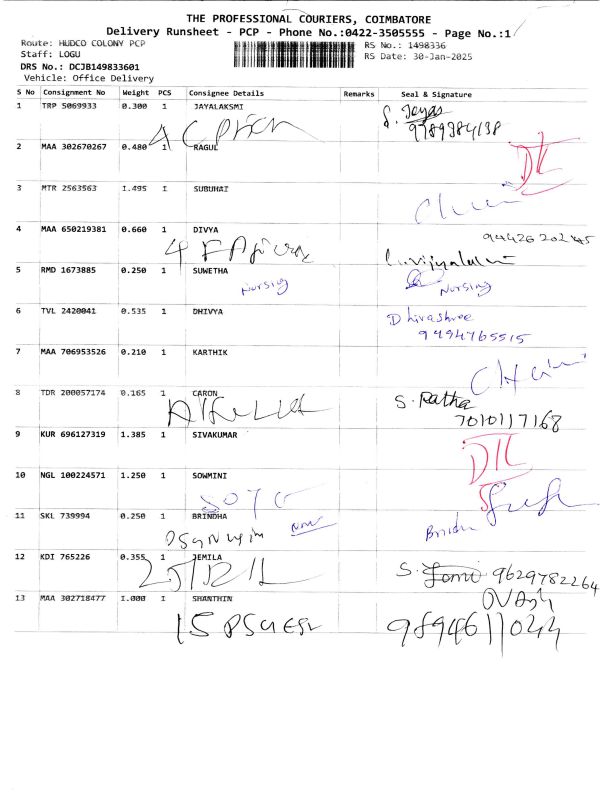 THE PROFESSIONAL COURIERS, COIMBATORE
Delivery Runsheet - PCP - Phone No.:0422-3505555 - Page No.:1
Route: HUDCO COLONY PCP
Staff: LOGU
DRS No.: DCJB149833601
Vehicle: Office Delivery
RS No.: 1498336
RS Date: 30-Jan-2025
S No Consignment No Weight PCS Consignee Details Remarks Seal & Signature
1 TRP 5069933 0.300 1 JAYALAKSMI
9789384198
2 MAA 302670267 0.480 1 RAGUL
3 MTR 2563563 1.495 1 SUBUHAI
4 MAA 650219381 0.660 1 DIVYA
5 RMD 1673885 0.250 1 SUWETHA
Nursing Nursing
6 TVL 2420041 0.535 1 DHIVYA Dhivashree
9494765515
7 MAA 706953526 0.210 1 KARTHIK
8 TDR 200057174 0.165 1 CARON S. Ratha
7010117168
9 KUR 696127319 1.385 1 SIVAKUMAR
10 NGL 100224571 1.250 1 SOWMINI
11 SKL 739994 0.250 1 BRINDHA
12 KDI 765226 0.355 1 JEMILA
9629782264
13 MAA 302718477 1.000 1 SHANTHIN
9894611044